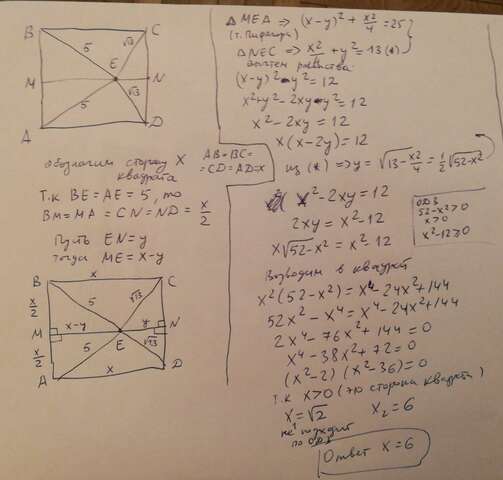 B C
5 √13
M E N
5 √13
A D
обозначим сторону x
квадрата
AB=BC=
=CD=AD=x
Т.к BE=AE=5, то
BM=MA=CN=ND= x/2
Пусть EN=y
тогда ME=x-y
B x C
x/2 5 √13
M x-y y N
E
x/2 5 √13
A x D
Δ MEA => (x-y)² + x²/4 = 25
(т. Пифагора)
Δ NEC => x²/4 + y² = 13 (*)
вычтем равенства
(x-y)² - y² = 12
x² + y² - 2xy - y² = 12
x² - 2xy = 12
x(x-2y) = 12
из (*) => y = √13 - x²/4 = 1/2 √52-x²
x² - 2xy = 12
2xy = x² - 12
x√52-x² = x² - 12
ОДЗ
52-x²>0
x>0
x²-12≥0
Возводим в квадрат
x²(52-x²) = x⁴ - 24x² + 144
52x² - x⁴ = x⁴ - 24x² + 144
2x⁴ - 76x² + 144 = 0
x⁴ - 38x² + 72 = 0
(x²-2)(x²-36) = 0
т.к x>0 (это сторона квадрата)
x₁=√2 x₂=6
не подходит
по ОДЗ
Ответ x=6